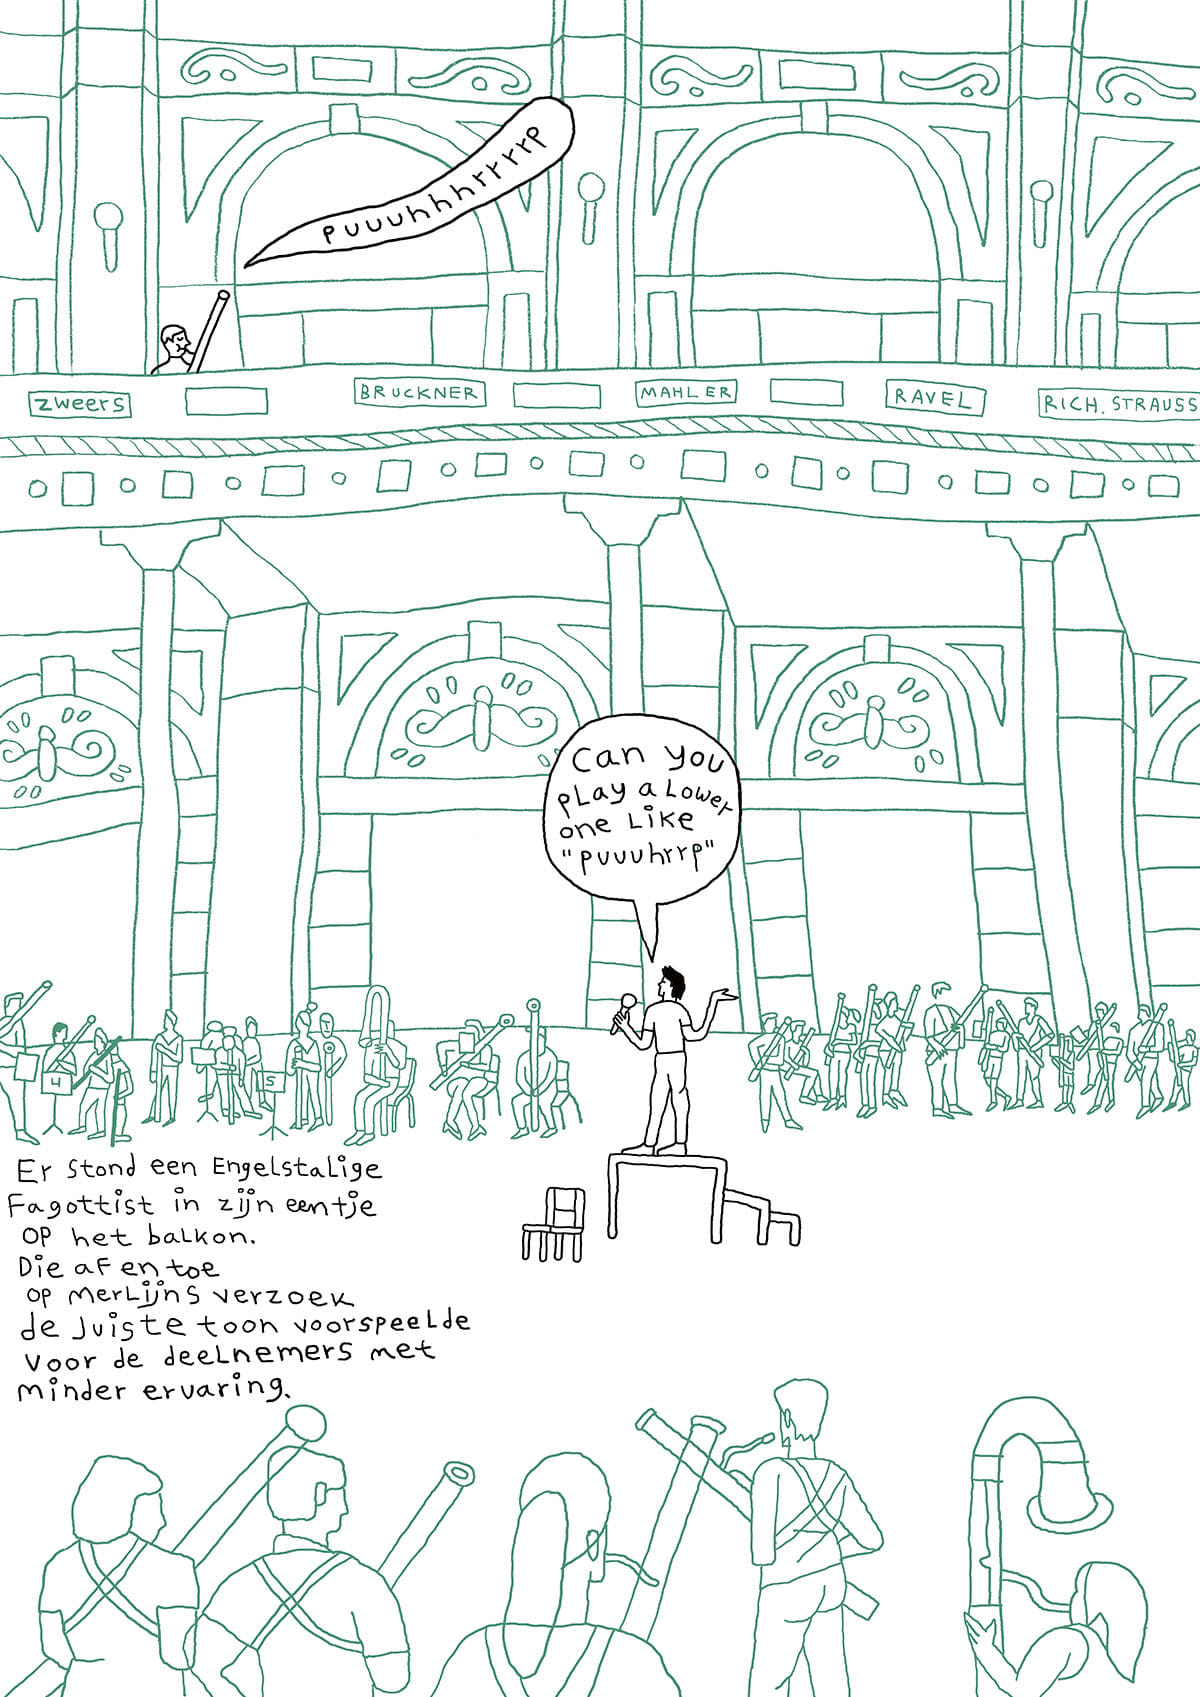 puuuhhhrrrrp
ZWEERS
BRUCKNER
MAHLER
RAVEL
RICH. STRAUSS
Can you
play a lower
one like
"puuuhrrp"
4
5
Er stond een Engelstalige
Fagottist in zijn eentje
op het balkon.
Die af en toe
op Merlijns verzoek
de juiste toon voorspeelde
voor de deelnemers met
minder ervaring.